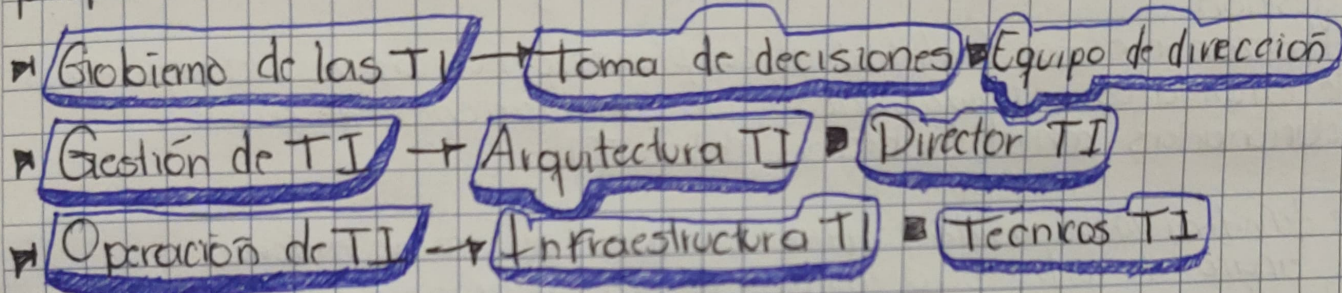 Gobierno de las TI → Toma de decisiones ▪ Equipo de dirección
Gestión de TI → Arquitectura TI ▪ Director TI
Operación de TI → Infraestructura TI ▪ Técnicos TI